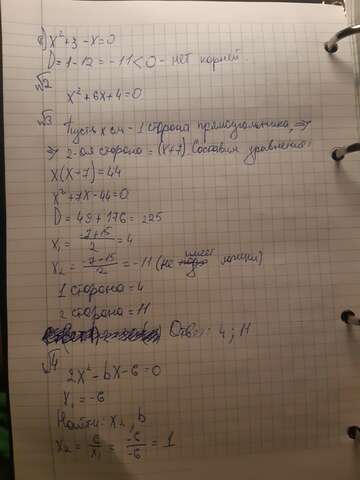 в) x²+3-x=0
D=1-12=-11<0-нет корней.
№2
x²+6x+4=0
№3 Пусть x см-1 сторона прямоугольника, ⇒
⇒ 2-ая сторона = (x+7). Составим уравнение:
x(x-7)=44
x²+7x-44=0
D=49+176=225
x₁=(-7+15)/2=4
x₂=(-7-15)/2=-11 (не имеет логики)
1 сторона=4
2 сторона=11
Ответ: 4; 11
№4
2x²-bx-6=0
x₁=-6
Найти: x₂, b
x₂=6/x₁=-6/-6=1